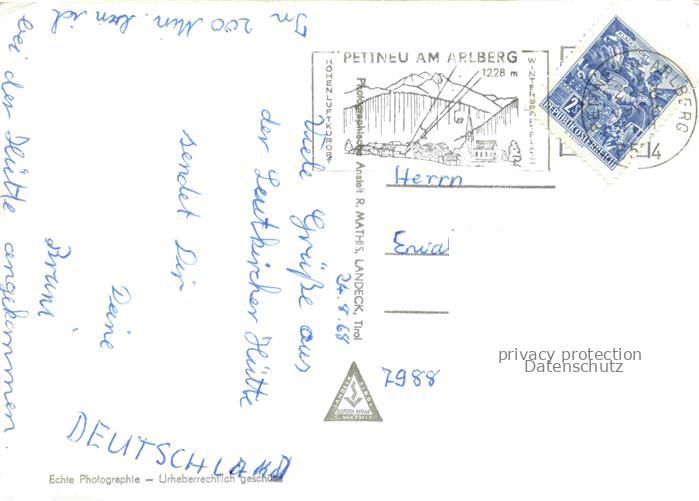 In 200 Min. bin ich
bei der Hütte angekommen.
24.8.68
Viele Grüße aus
der Leutkircher Hütte
sendet Dir
Deine
Bruni
PETTNEU AM ARLBERG
1228 m
HÖHENLUFTKURORT
REPUBLIK ÖSTERREICH
Photographische Anstalt R. MATHIS, LANDECK, Tirol
Herrn
7988
DEUTSCHLAND
LANDECK TIROL
R. MATHIS
privacy protection
Datenschutz
Echte Photographie – Urheberrechtlich geschützt